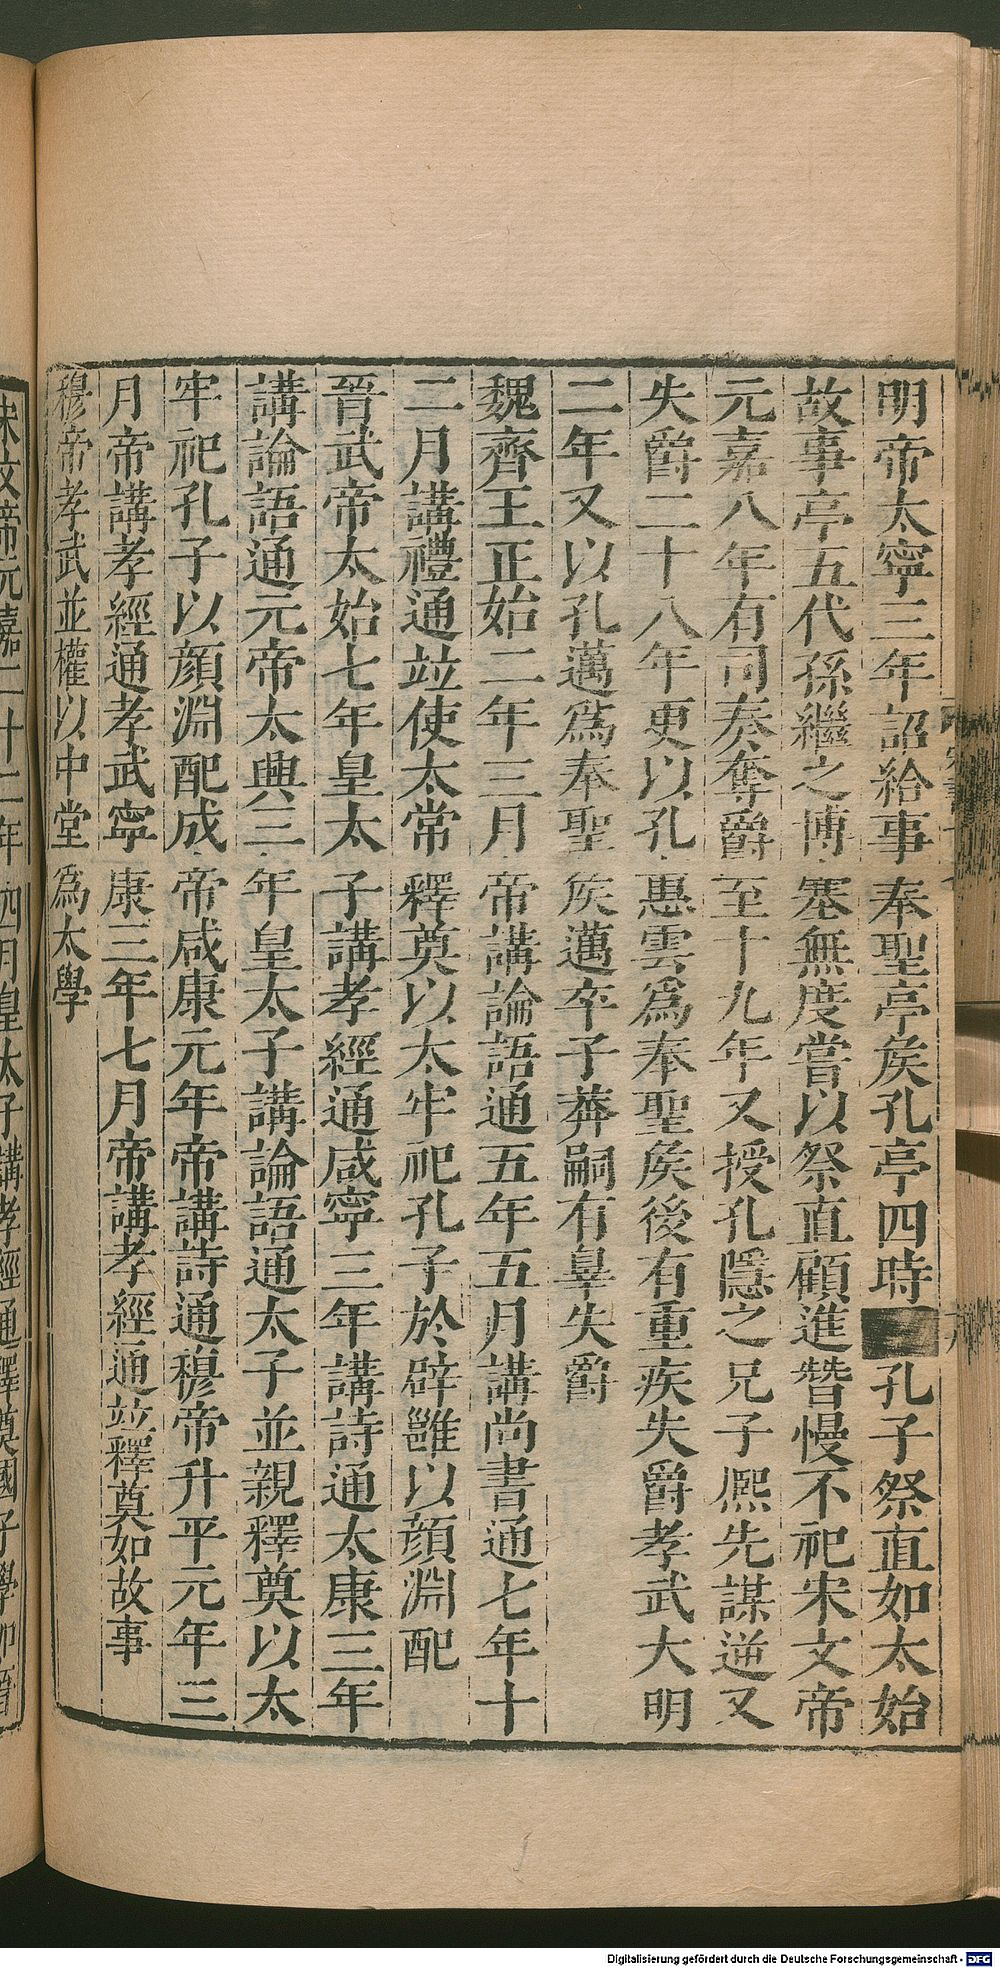 明帝太寧三年詔給事奉聖亭矦孔亭四時孔子祭直如太始
故事亭五代孫繼之博塞無度嘗以祭直顧進替慢不祀宋文帝
元嘉八年有司奏奪爵至十九年又授孔隱之兄子熈先謀逆又
失爵二十八年更以孔惠雲爲奉聖矦後有重疾失爵孝武大明
二年又以孔邁爲奉聖矦邁卒子莾嗣有辠失爵
魏齊王正始二年三月帝講論語通五年五月講尚書通七年十
二月講禮通竝使太常釋奠以太牢祀孔子於辟雝以顔淵配
晉武帝太始七年皇太子講孝經通咸寧三年講詩通太康三年
講論語通元帝太興三年皇太子講論語通太子並親釋奠以太
牢祀孔子以顔淵配成帝咸康元年帝講詩通穆帝升平元年三
月帝講孝經通孝武寧康三年七月帝講孝經通竝釋奠如故事
穆帝孝武並權以中堂爲太學
宋文帝元嘉二十二年四月皇太子講孝經通釋奠國子學如晉
Digitalisierung gefördert durch die Deutsche Forschungsgemeinschaft - DFG